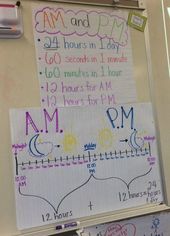 AM and P.M.
• 24 hours in 1 day
• 60 seconds in 1 minute
• 60 minutes in 1 hour
• 12 hours for AM
• 12 hours for PM
A.M. P.M.
Midnight Midday Midnight
12:00 AM 12:00 PM 12:00 AM
12 hours + 12 hours = 24 hours 1 day